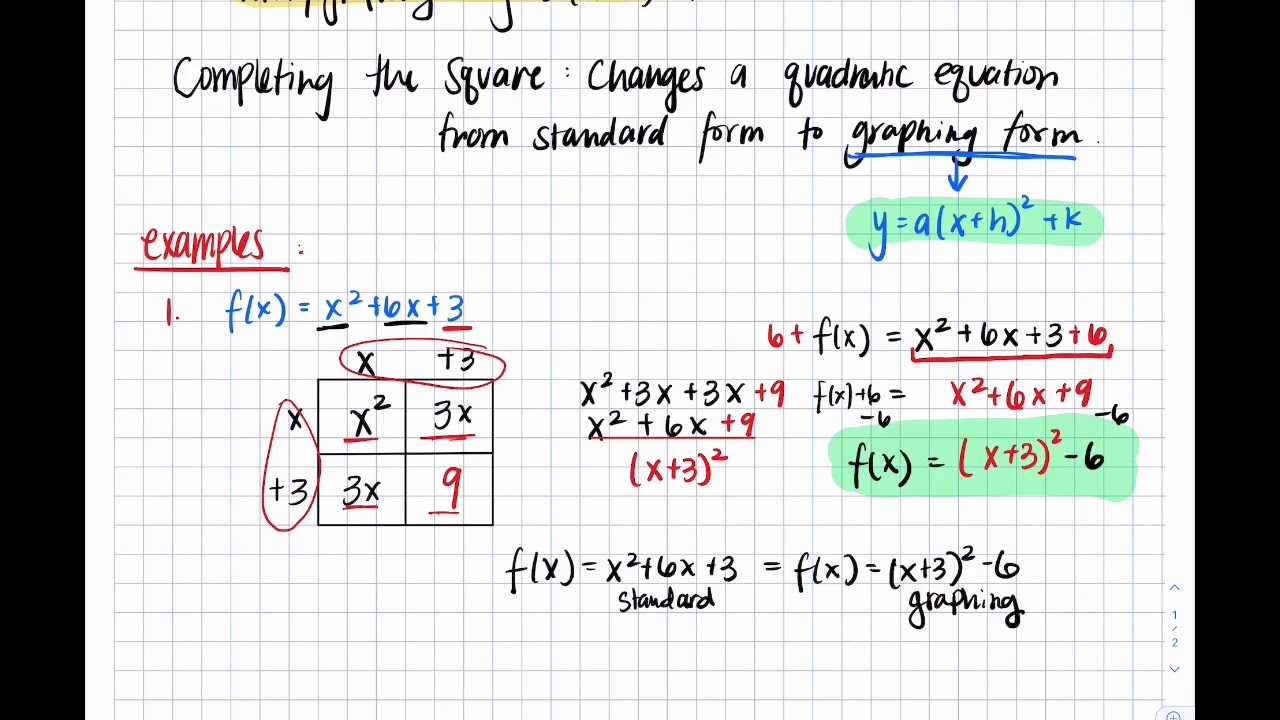 Completing the Square : Changes a quadratic equation
from standard form to graphing form.
y = a(x+h)² + k
examples :
1. f(x) = x² + 6x + 3
x +3
x x² 3x
+3 3x 9
x² + 3x + 3x + 9
x² + 6x + 9
(x+3)²
6 + f(x) = x² + 6x + 3 + 6
f(x) + 6 = x² + 6x + 9
-6 -6
f(x) = (x+3)² - 6
f(x) = x² + 6x + 3 = f(x) = (x+3)² - 6
standard graphing
1
/
2